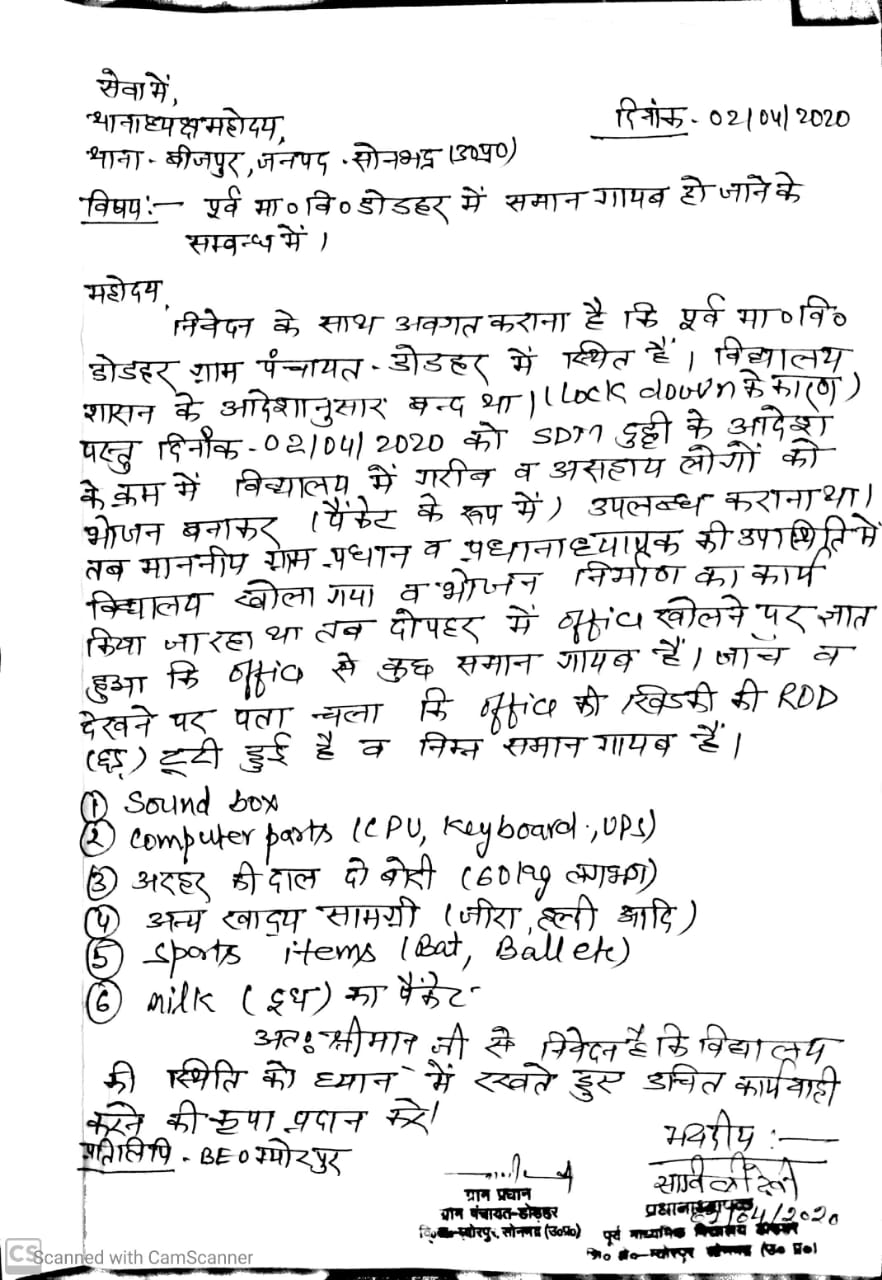 सेवा में,
थानाध्यक्ष महोदय,
दिनांक - 02/04/2020
थाना - बीजपुर, जनपद - सोनभद्र (उ०प्र०)
विषय :- पूर्व मा० वि० डोडहर में समान गायब हो जाने के
सम्बन्ध में ।
महोदय,
निवेदन के साथ अवगत कराना है कि पूर्व मा० वि०
डोडहर ग्राम पंचायत - डोडहर में स्थित हैं । विद्यालय
शासन के आदेशानुसार बन्द था । (Lock down के कारण)
परन्तु दिनाँक - 02/04/2020 को SDM दुद्दी के आदेश
के क्रम में विद्यालय में गरीब व असहाय लोगों को
भोजन बनाकर (पैंकेट के रूप में) उपलब्ध कराना था ।
तब माननीय ग्राम प्रधान व प्रधानाध्यापक की उपास्थिति में
विद्यालय खोला गया व भोजन निर्माण का कार्य
किया जा रहा था तब दोपहर में office खोलने पर ज्ञात
हुआ कि office से कुछ समान गायब हैं । जाँच व
देखने पर पता चला कि office की खिडकी की ROD
(छड़) टूटी हुई है व निम्न समान गायब हैं ।
① Sound box
② Computer parts (CPU, Keyboard, UPS)
③ अरहर की दाल दो बोरी (60 kg लगभग)
④ अन्य खाद्य सामग्री (जीरा, हल्दी आदि)
⑤ Sports items (Bat, Ball etc)
⑥ milk (दूध) का पैंकेट
अतः श्रीमान जी से निवेदन है कि विद्यालय
की स्थिति को ध्यान में रखते हुए उचित कार्यवाही
करने की कृपा प्रदान करे ।
प्रतिलिपि - BEO म्योरपुर
भवदीय :-
सावित्री देवी
ग्राम प्रधान
ग्राम पंचायत-डोडहर
वि० ख०-म्योरपुर, सोनभद्र (उ०प्र०)
प्रधानाध्यापक
02/04/2020
पूर्व माध्यमिक विद्यालय डोडहर
म्योरपुर सोनभद्र (उ० प्र०)
CS Scanned with CamScanner